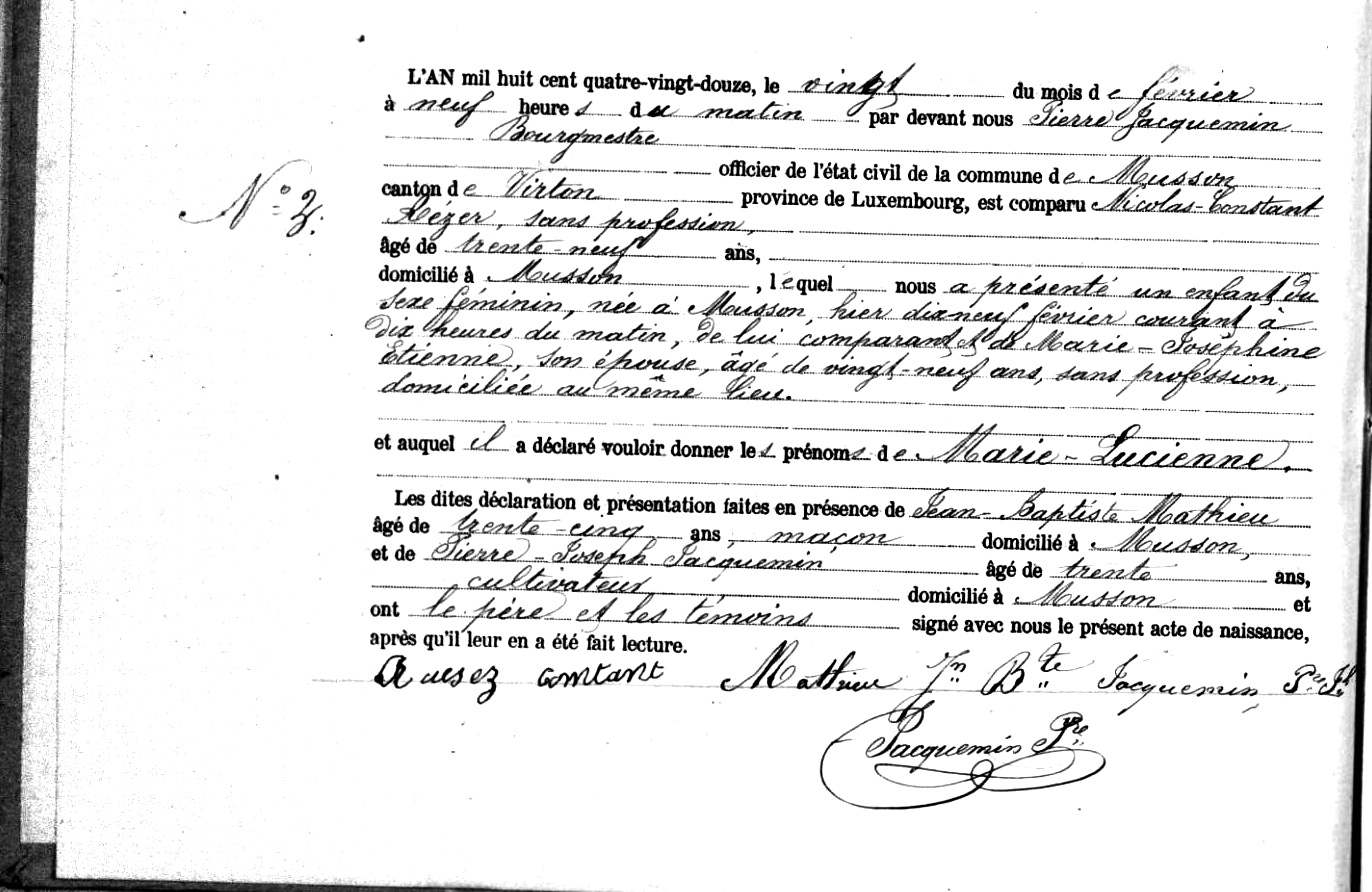 L'AN mil huit cent quatre-vingt-douze, le vingt du mois de février
à neuf heures du matin par devant nous Pierre Jacquemin
Bourgmestre
officier de l'état civil de la commune de Musson
canton de Virton province de Luxembourg, est comparu Nicolas-Constant
N°
sans profession,
âgé de trente-neuf ans,
domicilié à Musson, lequel nous a présenté un enfant du
sexe féminin, née à Musson, hier dixneuf février courant à
dix heures du matin, de lui comparant et de Marie-Joséphine
Etienne, son épouse, âgé de vingt-neuf ans, sans profession,
domiciliée au même lieu.
et auquel il a déclaré vouloir donner les prénoms de Marie-Lucienne.
Les dites déclaration et présentation faites en présence de Jean-Baptiste Mathieu
âgé de trente-cinq ans, maçon domicilié à Musson,
et de Pierre-Joseph Jacquemin, âgé de trente ans,
cultivateur domicilié à Musson et
ont le père et les témoins signé avec nous le présent acte de naissance,
après qu'il leur en a été fait lecture.
Mathieu Jn Bte Jacquemin Pre Jh
Jacquemin Pre